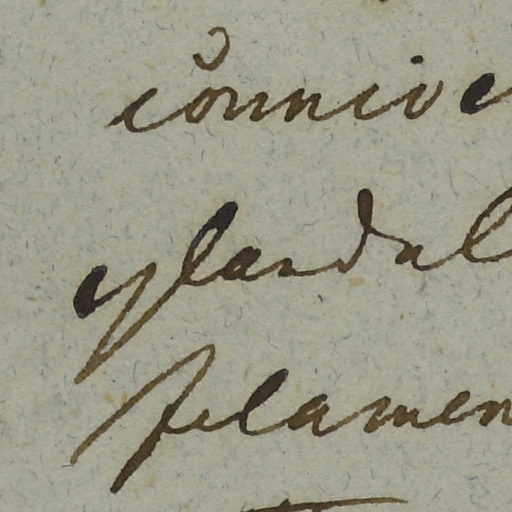 connive
glandul
filamen